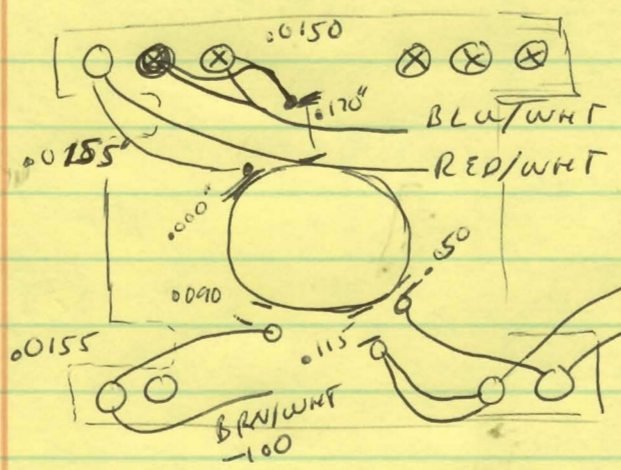 .0150
.120"
BLU/WHT
.0155"
RED/WHT
.000"
.50
.0090
.0155
.115
BRN/WHT
-100